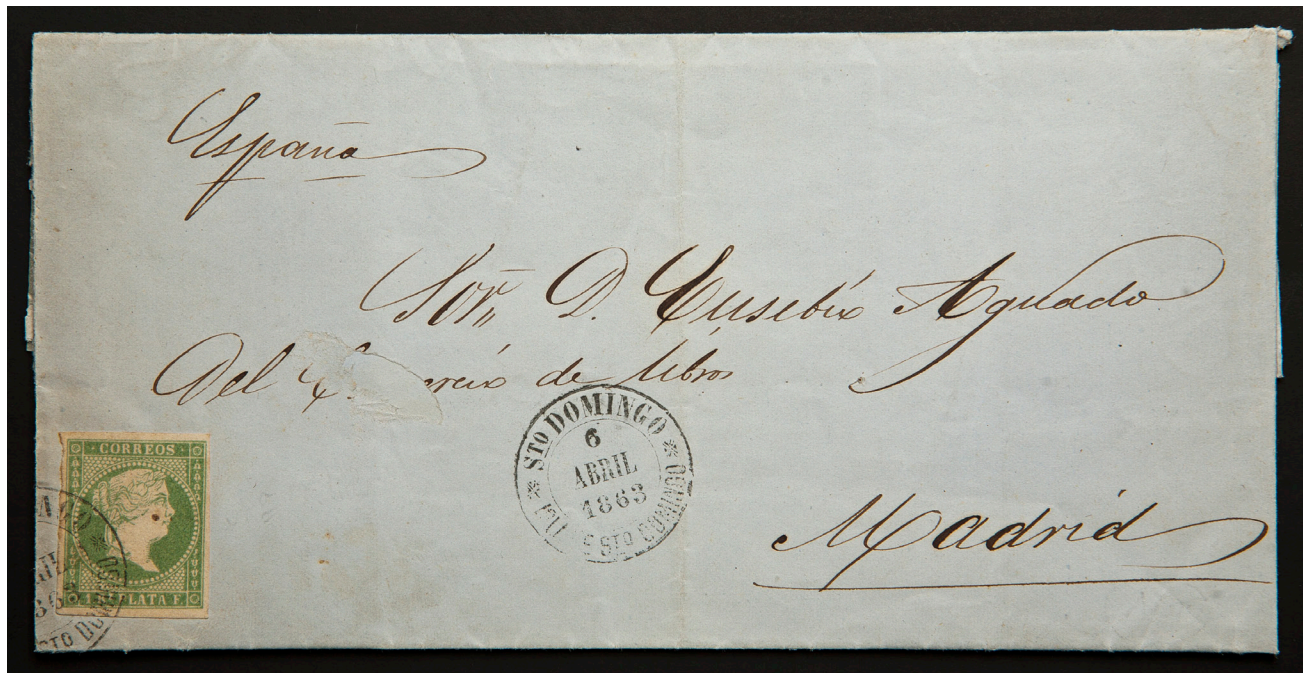 España
Sor,, D. Eusebio Aguado
Del de libros
Madrid
STO DOMINGO
6
ABRIL
1863
STO DOMINGO
CORREOS
PLATA F.